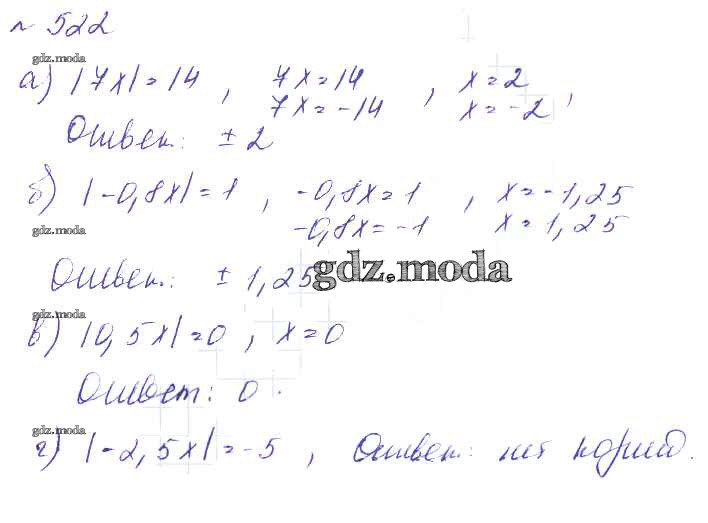 № 522
gdz.moda
а) |7x|=14, 7x=14, x=2
7x=-14 x=-2,
Ответ: ±2
б) |-0,8x|=1, -0,8x=1, x=-1,25
gdz.moda
-0,8x=-1 x=1,25
Ответ: ±1,25
gdz.moda
gdz.moda
в) |0,5x|=0, x=0
Ответ: 0.
gdz.moda
г) |-2,5x|=-5, Ответ: нет корней.